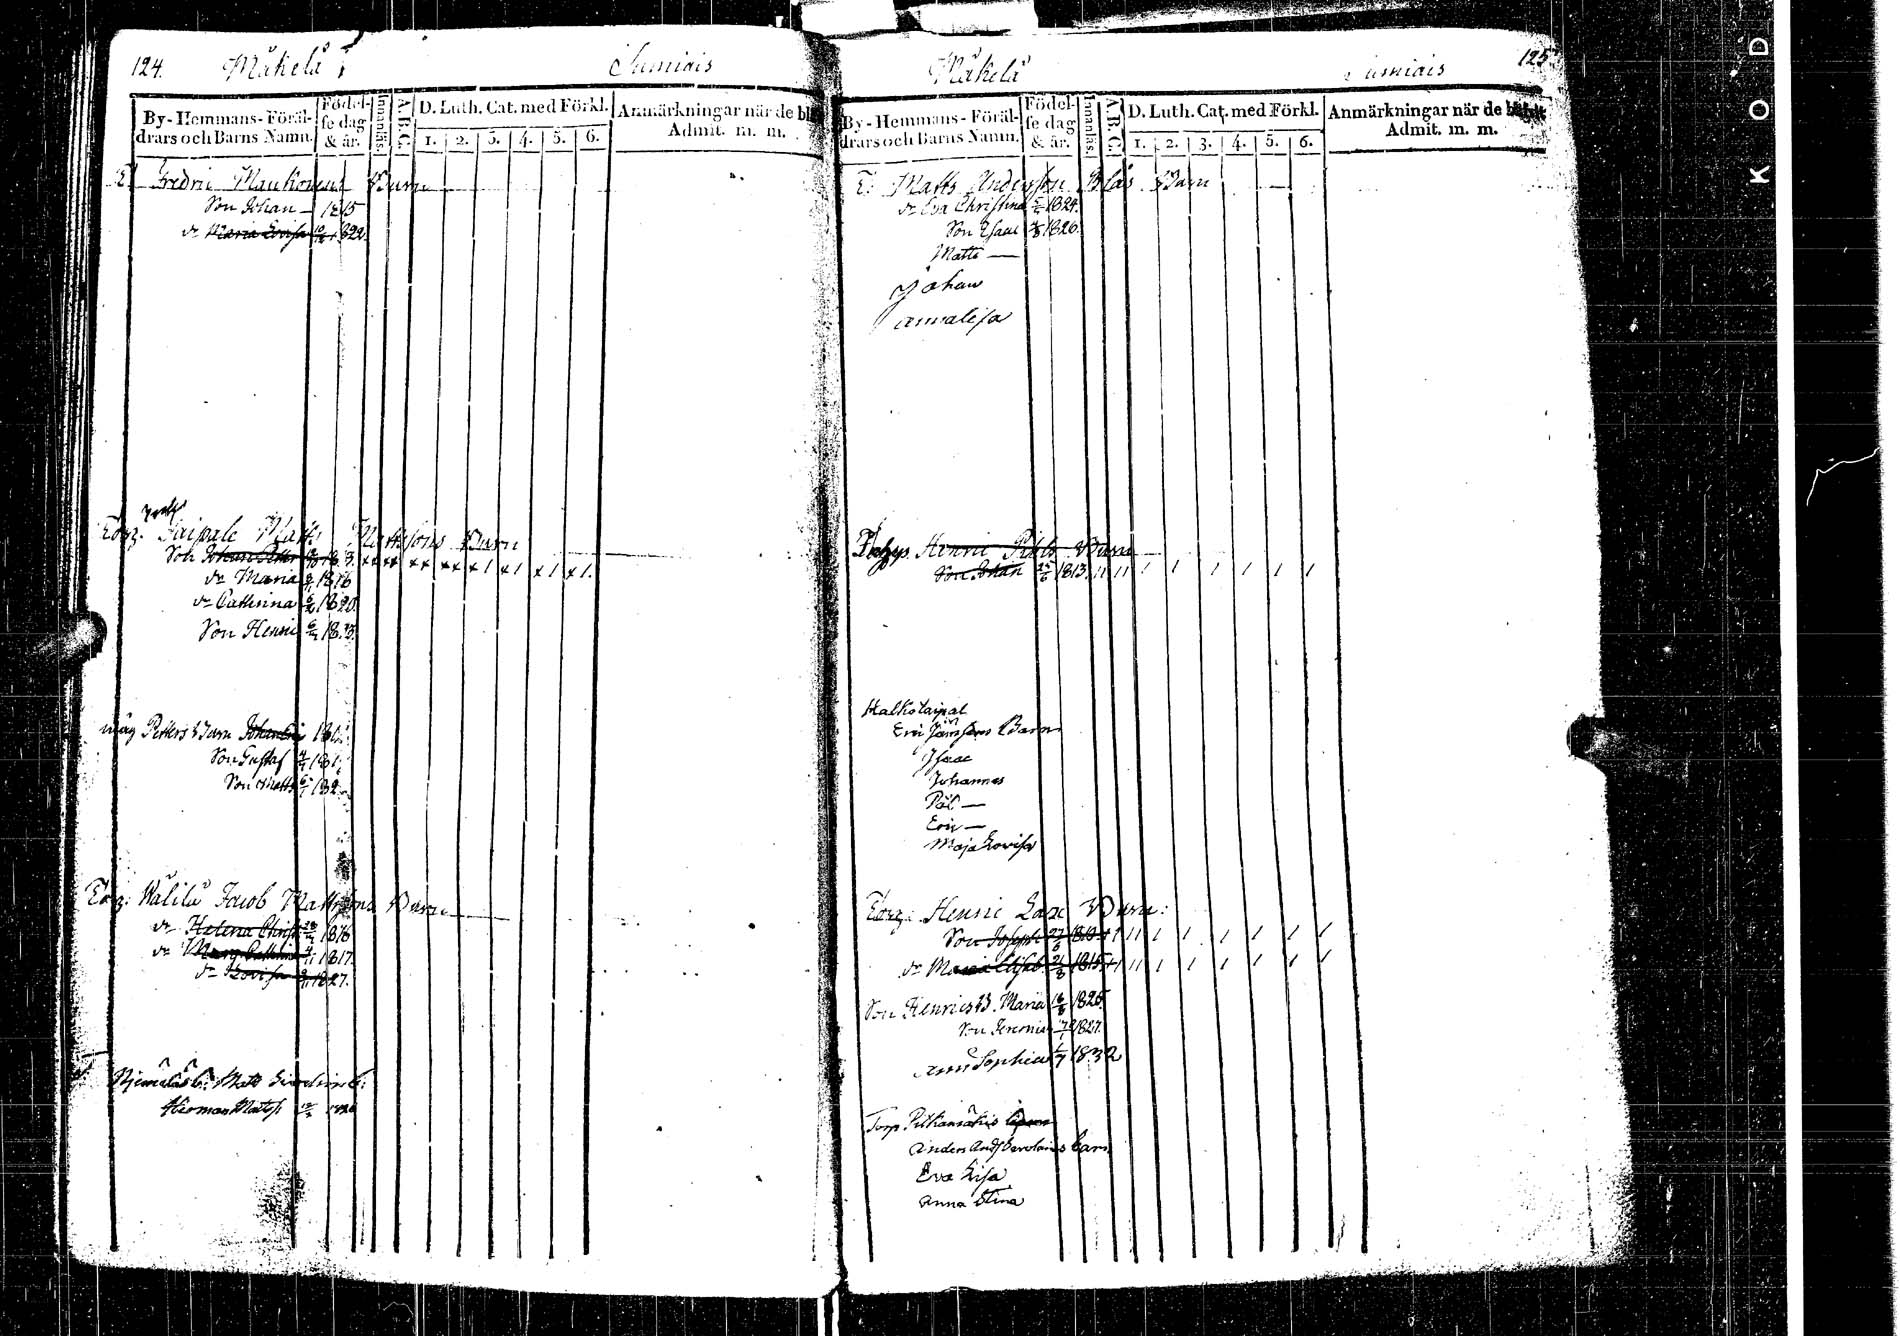 124. Mäkelä Sumiais
By-Hemmans-Föräl-
drars och Barns Namn.
Födel-
se dag
& år.
Innanläs.
A.B.C.
D. Luth. Cat. med Förkl.
1. 2. 3. 4. 5. 6.
Anmärkningar när de
Admit. m. m.
Fredric Mankonens Barn
Son Johan — 1815
dr Maria Lovisa 1822.
Torp. Taipale Matts Mattssons Barn
Son Johan Petter
dr Maria 1816
dr Cathrina 1820.
Son Henric
måg Petters Barn Johan Eric
Son Gustaf
Son Matts
Torp. Wälilä Jacob Mattssons Barn
dr Helena Christ. 1816
dr Marg. Cathrina 1817.
dr Lovisa 1827.
Matts
Herman Matss
Mäkelä Sumiais 125.
By-Hemmans-Föräl-
drars och Barns Namn.
Födel-
se dag
& år.
Innanläs.
A.B.C.
D. Luth. Cat. med Förkl.
1. 2. 3. 4. 5. 6.
Anmärkningar när de
Admit. m. m.
Matts Andersson Blås Barn
dr Eva Christina 1824.
Son Isaac 1826.
Matts —
Johan
Annalisa
Henric Pihls Barn
Son Johan 25/6 1813.
Halkotaipal
Eric Janssons Barn
Isaac
Johannes
Pål —
Eric —
Maja Lovisa
Torp. Henric Lax Barn:
Son Joseph 27/6 1813
dr Maria Elisab. 21/8 1815
Son Henrics B. Maria 1825.
Son Jeremias 1827.
Ann Sophia 1/7 1832
Torp Pitkämäkis
Anders Barn
Eva Lisa
Anna Stina
KOD